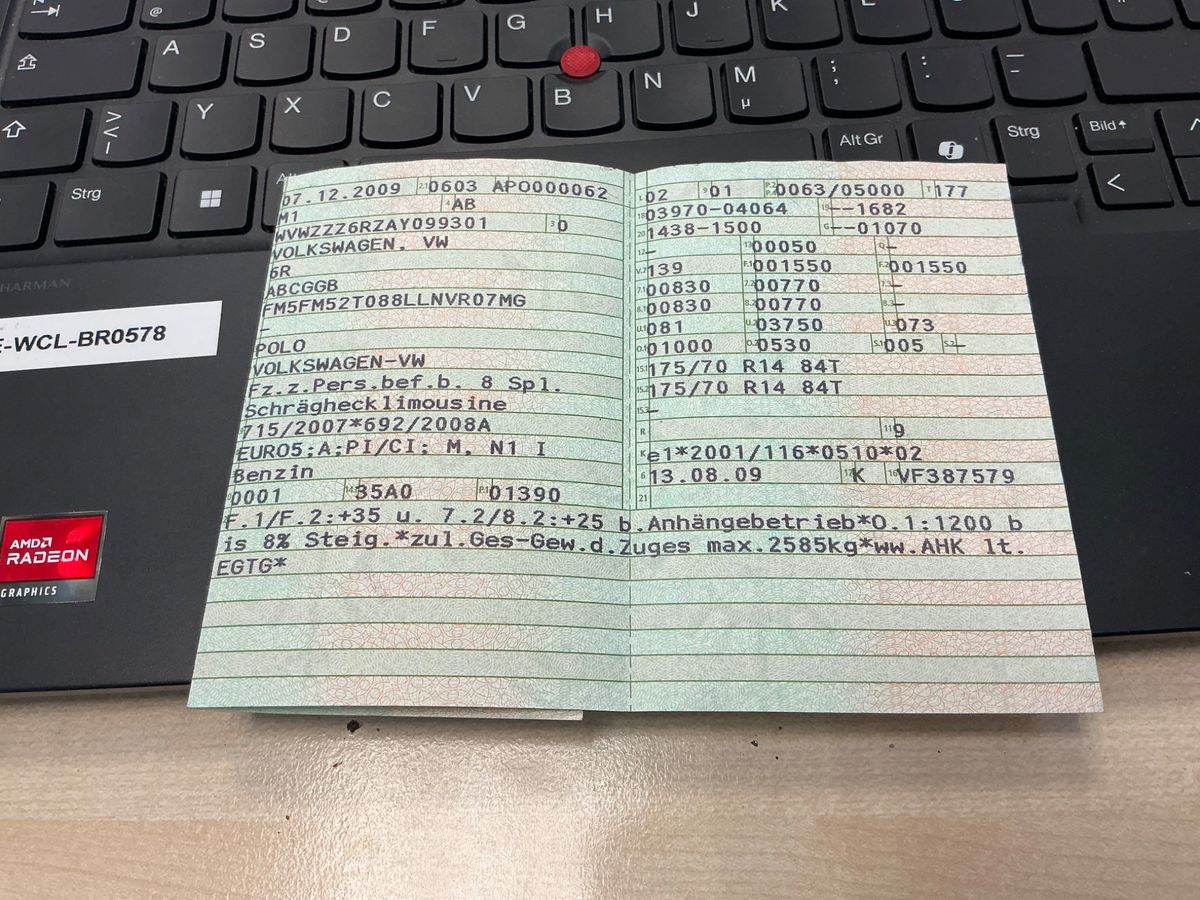 A S D F G H J K L
Y X C V B N M µ ; , : . _ -
> < |
Strg Alt Gr Strg Bild
HARMAN
E-WCL-BR0578
AMD
RADEON
GRAPHICS
07.12.2009 0603 APO000062
M1 AB
WVWZZZ6RZAY099301 3 0
VOLKSWAGEN, VW
6R
ABCGGB
FM5FM52T088LLNVR07MG
-
POLO
VOLKSWAGEN-VW
Fz.z.Pers.bef.b. 8 Spl.
Schräghecklimousine
715/2007*692/2008A
EURO5;A;PI/CI; M, N1 I
Benzin
0001 35A0 P.1 01390
L 02 9 01 P.2 0063/05000 T 177
18 03970-04064 19 --1682
20 1438-1500 G --01070
12 - 13 00050 Q -
V.7 139 F.1 001550 F.2 001550
7.1 00830 7.2 00770 7.3 -
8.1 00830 8.2 00770 8.3 -
U.1 081 U.2 03750 U.3 073
O.1 01000 O.2 0530 S.1 005 S.2 -
15.1 175/70 R14 84T
15.2 175/70 R14 84T
15.3 -
R 11 9
K e1*2001/116*0510*02
6 13.08.09 17 K 16 VF387579
21
F.1/F.2:+35 u. 7.2/8.2:+25 b.Anhängebetrieb*O.1:1200 b
is 8% Steig.*zul.Ges-Gew.d.Zuges max.2585kg*ww.AHK lt.
EGTG*